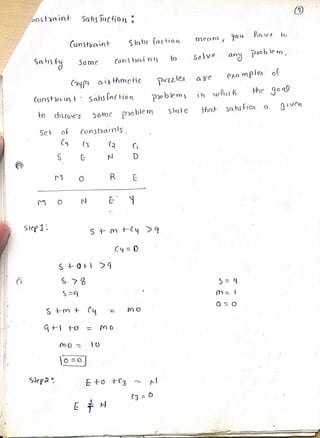 ③
onstraint Satisfaction :
Constraint Statisfaction means, you have to
Satisfy Some constraints to solve any problem.
Cryps airthmetic puzzles are examples of
Constraint Satisfaction problems in which the goal
to discover some problem state that satisfies a given
Set of constraints.
C4 C3 C2 C1
S E N D
M O R E
M O N E Y
Step 1: S + m + C4 > 9
C4 = 0
S + 0 + 1 > 9
S > 8 S = 9
S = 9 m = 1
S + m + C4 = mo o = 0
9 + 1 + 0 = mo
mo = 10
o = 0
Step 2: E + o + C3 = N
C3 = 0
E ≠ N